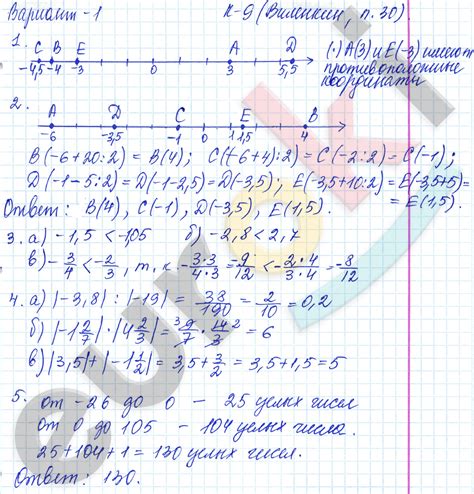 Вариант - 1 К-9 (Виленкин, п. 30).
1. C B E A D
-4,5 -4 -3 0 3 5,5
(·) A(3) и E(-3) имеют
противоположные
координаты
2. A D C E B
-6 -3,5 -1 0 1 1,5 4
B(-6+20:2) = B(4); C(-6+4):2) = C(-2:2) = C(-1);
D(-1-5:2) = D(-1-2,5) = D(-3,5); E(-3,5+10:2) = E(-3,5+5) =
= E(1,5).
Ответ: B(4), C(-1), D(-3,5), E(1,5).
3. а) -1,5 < -1,05 б) -2,8 < 2,7
в) -3/4 < -2/3, т.к. -3·3/4·3 = -9/12 < -2·4/3·4 = -8/12
4. а) |-3,8| : |-19| = 38/190 = 2/10 = 0,2
б) |-1 2/7| · |4 2/3| = 9/7 · 14/3 = 6
в) |3,5| + |-1 1/2| = 3,5 + 3/2 = 3,5 + 1,5 = 5
5. от -26 до 0 - 25 целых чисел
от 0 до 105 - 104 целых числа.
25 + 104 + 1 = 130 целых чисел.
Ответ: 130.
euroki